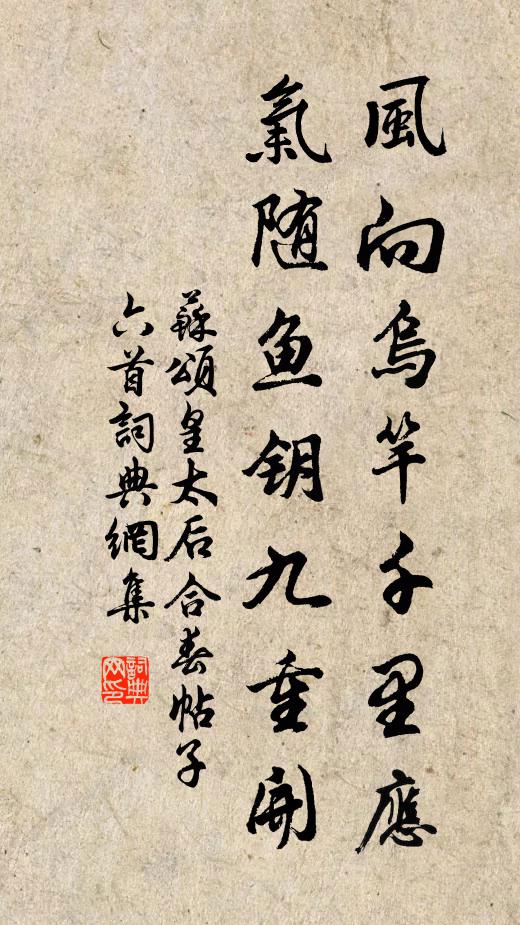 風向烏竿千里應
氣随鱼钥九重開
蘇頌皇太后合春帖子
六首詞典網集
詞典网印